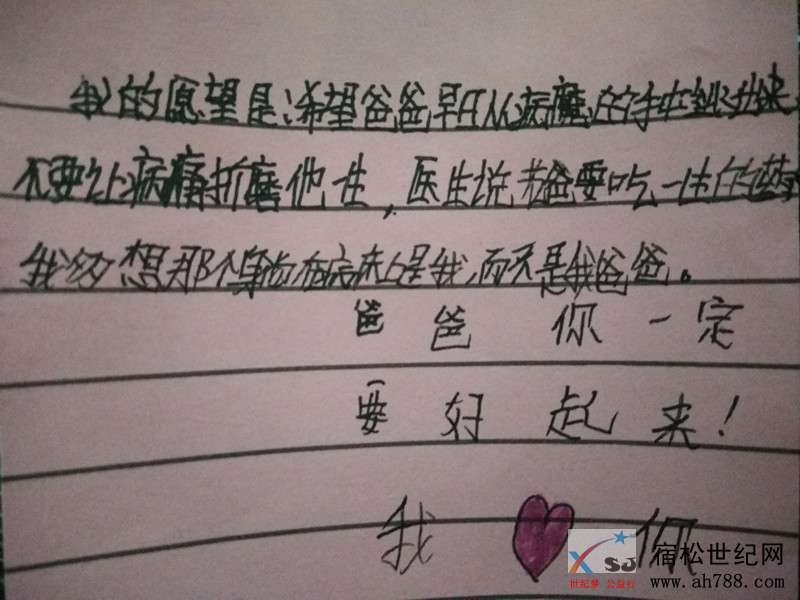 我的愿望是:希望爸爸早日从病魔的手中逃出来
不要让病痛折磨他一生,医生说老爸要吃一生的药
我多想那个躺在病床上是我,而不是我爸爸。
爸爸你一定
要好起来!
我 你
XSJ
世纪梦 公益行
宿松世纪网
www.ah788.com